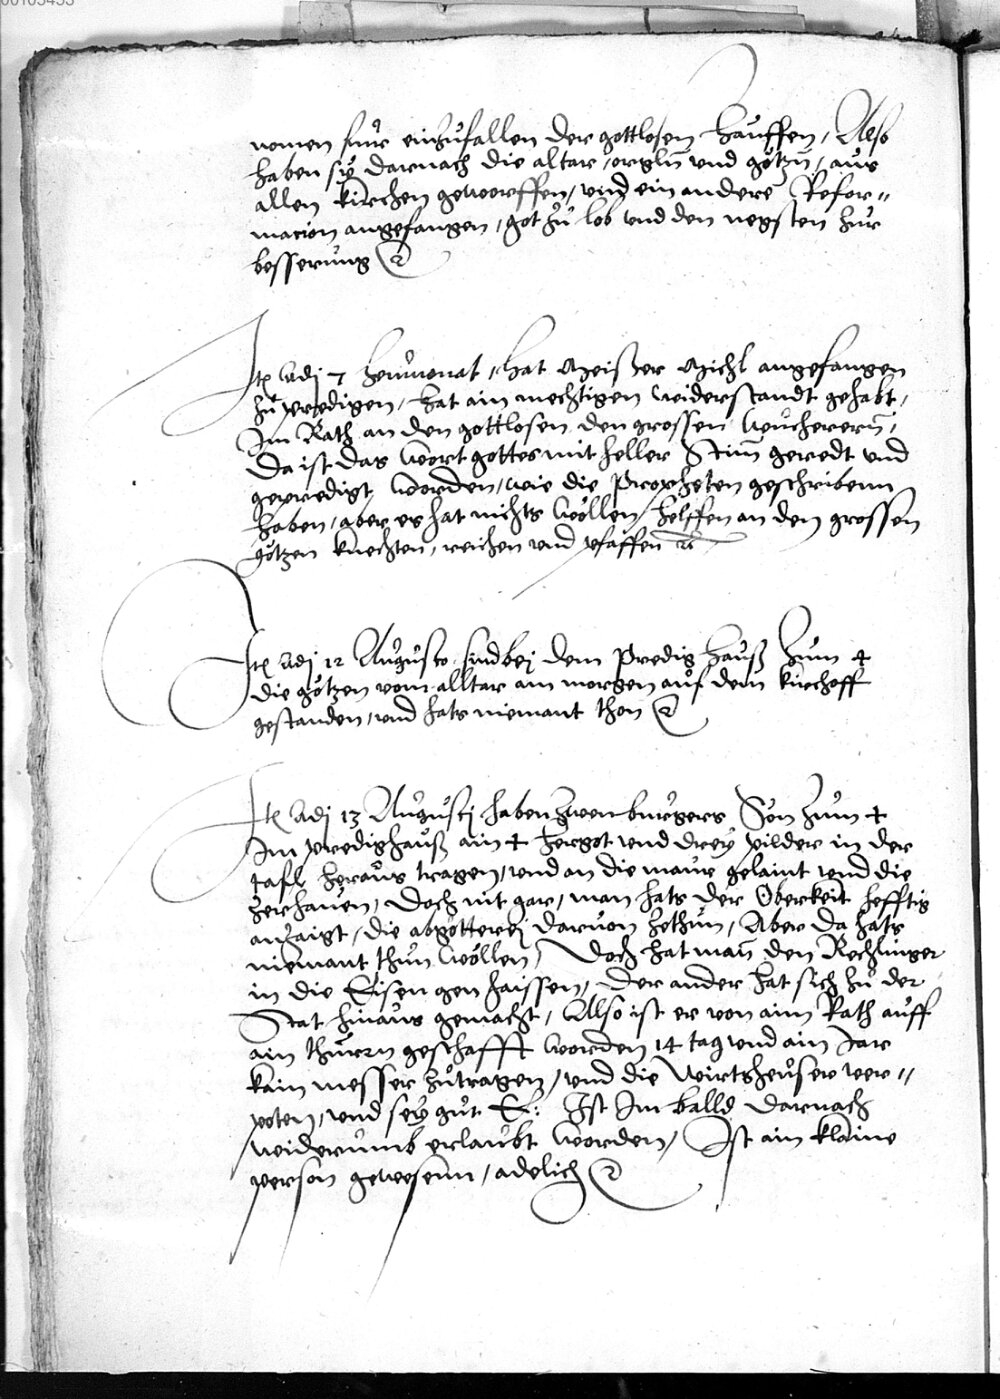 00105433
nomen für einzufallen der gottlosen hauffen, Also
haben sÿ darnach die altar, orgln vnd götzn, aus
allen kirchen geworffen, vnd ein andere Refor=
macion angefangen, got zu lob vnd den negsten zur
besserung
Itē Adj 7 heumonat, hat Meister Michl angefangen
zu predigen, hat ain mechtigen widerstandt gehabt,
Im Rath an den gottlosen den grossen wucherern,
Da ist das wort gottes mit heller Stim geredt vnd
gepredigt worden, wie die Propheten geschribenn
haben, aber es hat nichts wöllen helffen an den grossen
götzen knechten, reichen vnd pfaffen ꝛc
Itē Adj 12 Augusto sind bej dem Predig hauß zum +
die götzen vom alltar am morgen auf dem kirchoff
gestanden, vnd hats niemant thon
Itē Adj 13 Augustj haben zwen burgers Sön zum +
Im predighauß ain + hergot vnd dreÿ pilder in der
tafl heraus tragen, vnd an die maur gelaint vnd die
zerhauen, doch nit gar, man hats der Oberkeit hefftig
anzaigt, die abgötterej daruon zethun, Aber da hats
niemant thun wöllen, Doch hat man den Rechlinger
in die Eisen gen haissen, der ander hat sich zu der
Stat hinaus gemacht, Also ist er von aim Rath auff
ain thurn geschafft worden 14 tag vnd ain Jar
kain messer zutragen, vnd die wirtsheuser ver=
poten, vnd seÿ gut E: Ist Im balld darnach
widerumb erlaubt worden, Ist ain klaine
person gewesenn, adelich